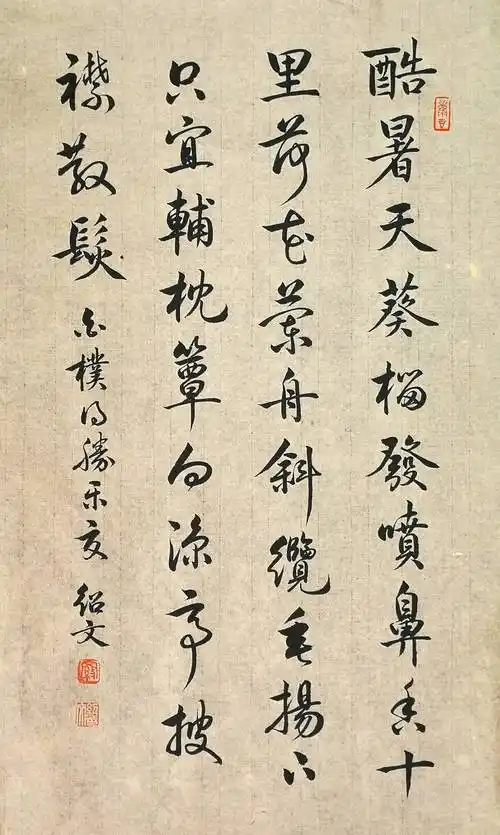 酷暑天葵榴發噴鼻香十
里荷花蘭舟斜纜垂揚下
只宜輔枕簟向涼亭披
襟散髮
白樸得勝樂夏 紹文